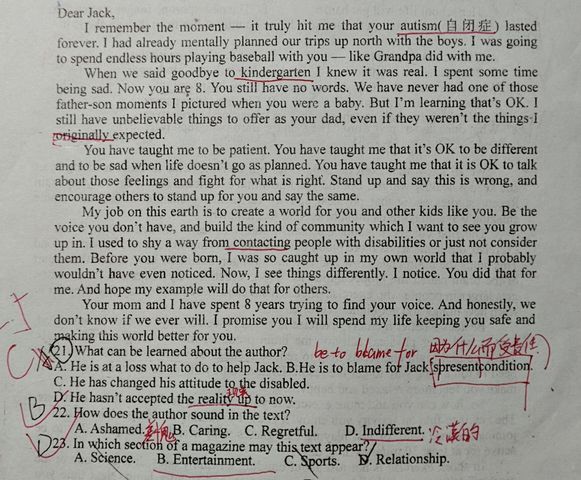 Dear Jack,
I remember the moment — it truly hit me that your autism(自闭症) lasted
forever. I had already mentally planned our trips up north with the boys. I was going
to spend endless hours playing baseball with you — like Grandpa did with me.
When we said goodbye to kindergarten I knew it was real. I spent some time
being sad. Now you are 8. You still have no words. We have never had one of those
father-son moments I pictured when you were a baby. But I'm learning that's OK. I
still have unbelievable things to offer as your dad, even if they weren't the things I
originally expected.
You have taught me to be patient. You have taught me that it's OK to be different
and to be sad when life doesn't go as planned. You have taught me that it is OK to talk
about those feelings and fight for what is right. Stand up and say this is wrong, and
encourage others to stand up for you and say the same.
My job on this earth is to create a world for you and other kids like you. Be the
voice you don't have, and build the kind of community which I want to see you grow
up in. I used to shy a way from contacting people with disabilities or just not consider
them. Before you were born, I was so caught up in my own world that I probably
wouldn't have even noticed. Now, I see things differently. I notice. You did that for
me. And hope my example will do that for others.
Your mom and I have spent 8 years trying to find your voice. And honestly, we
don't know if we ever will. I promise you I will spend my life keeping you safe and
making this world better for you.
C 21. What can be learned about the author? be to blame for 因为什么而受责任
A. He is at a loss what to do to help Jack. B.He is to blame for Jack'spresentcondition.
C. He has changed his attitude to the disabled.
D. He hasn't accepted the reality up to now.
现实
B 22. How does the author sound in the text?
A. Ashamed. 羞愧 B. Caring. C. Regretful. D. Indifferent. 冷漠的
D 23. In which section of a magazine may this text appear?
A. Science. B. Entertainment. C. Sports. D. Relationship.